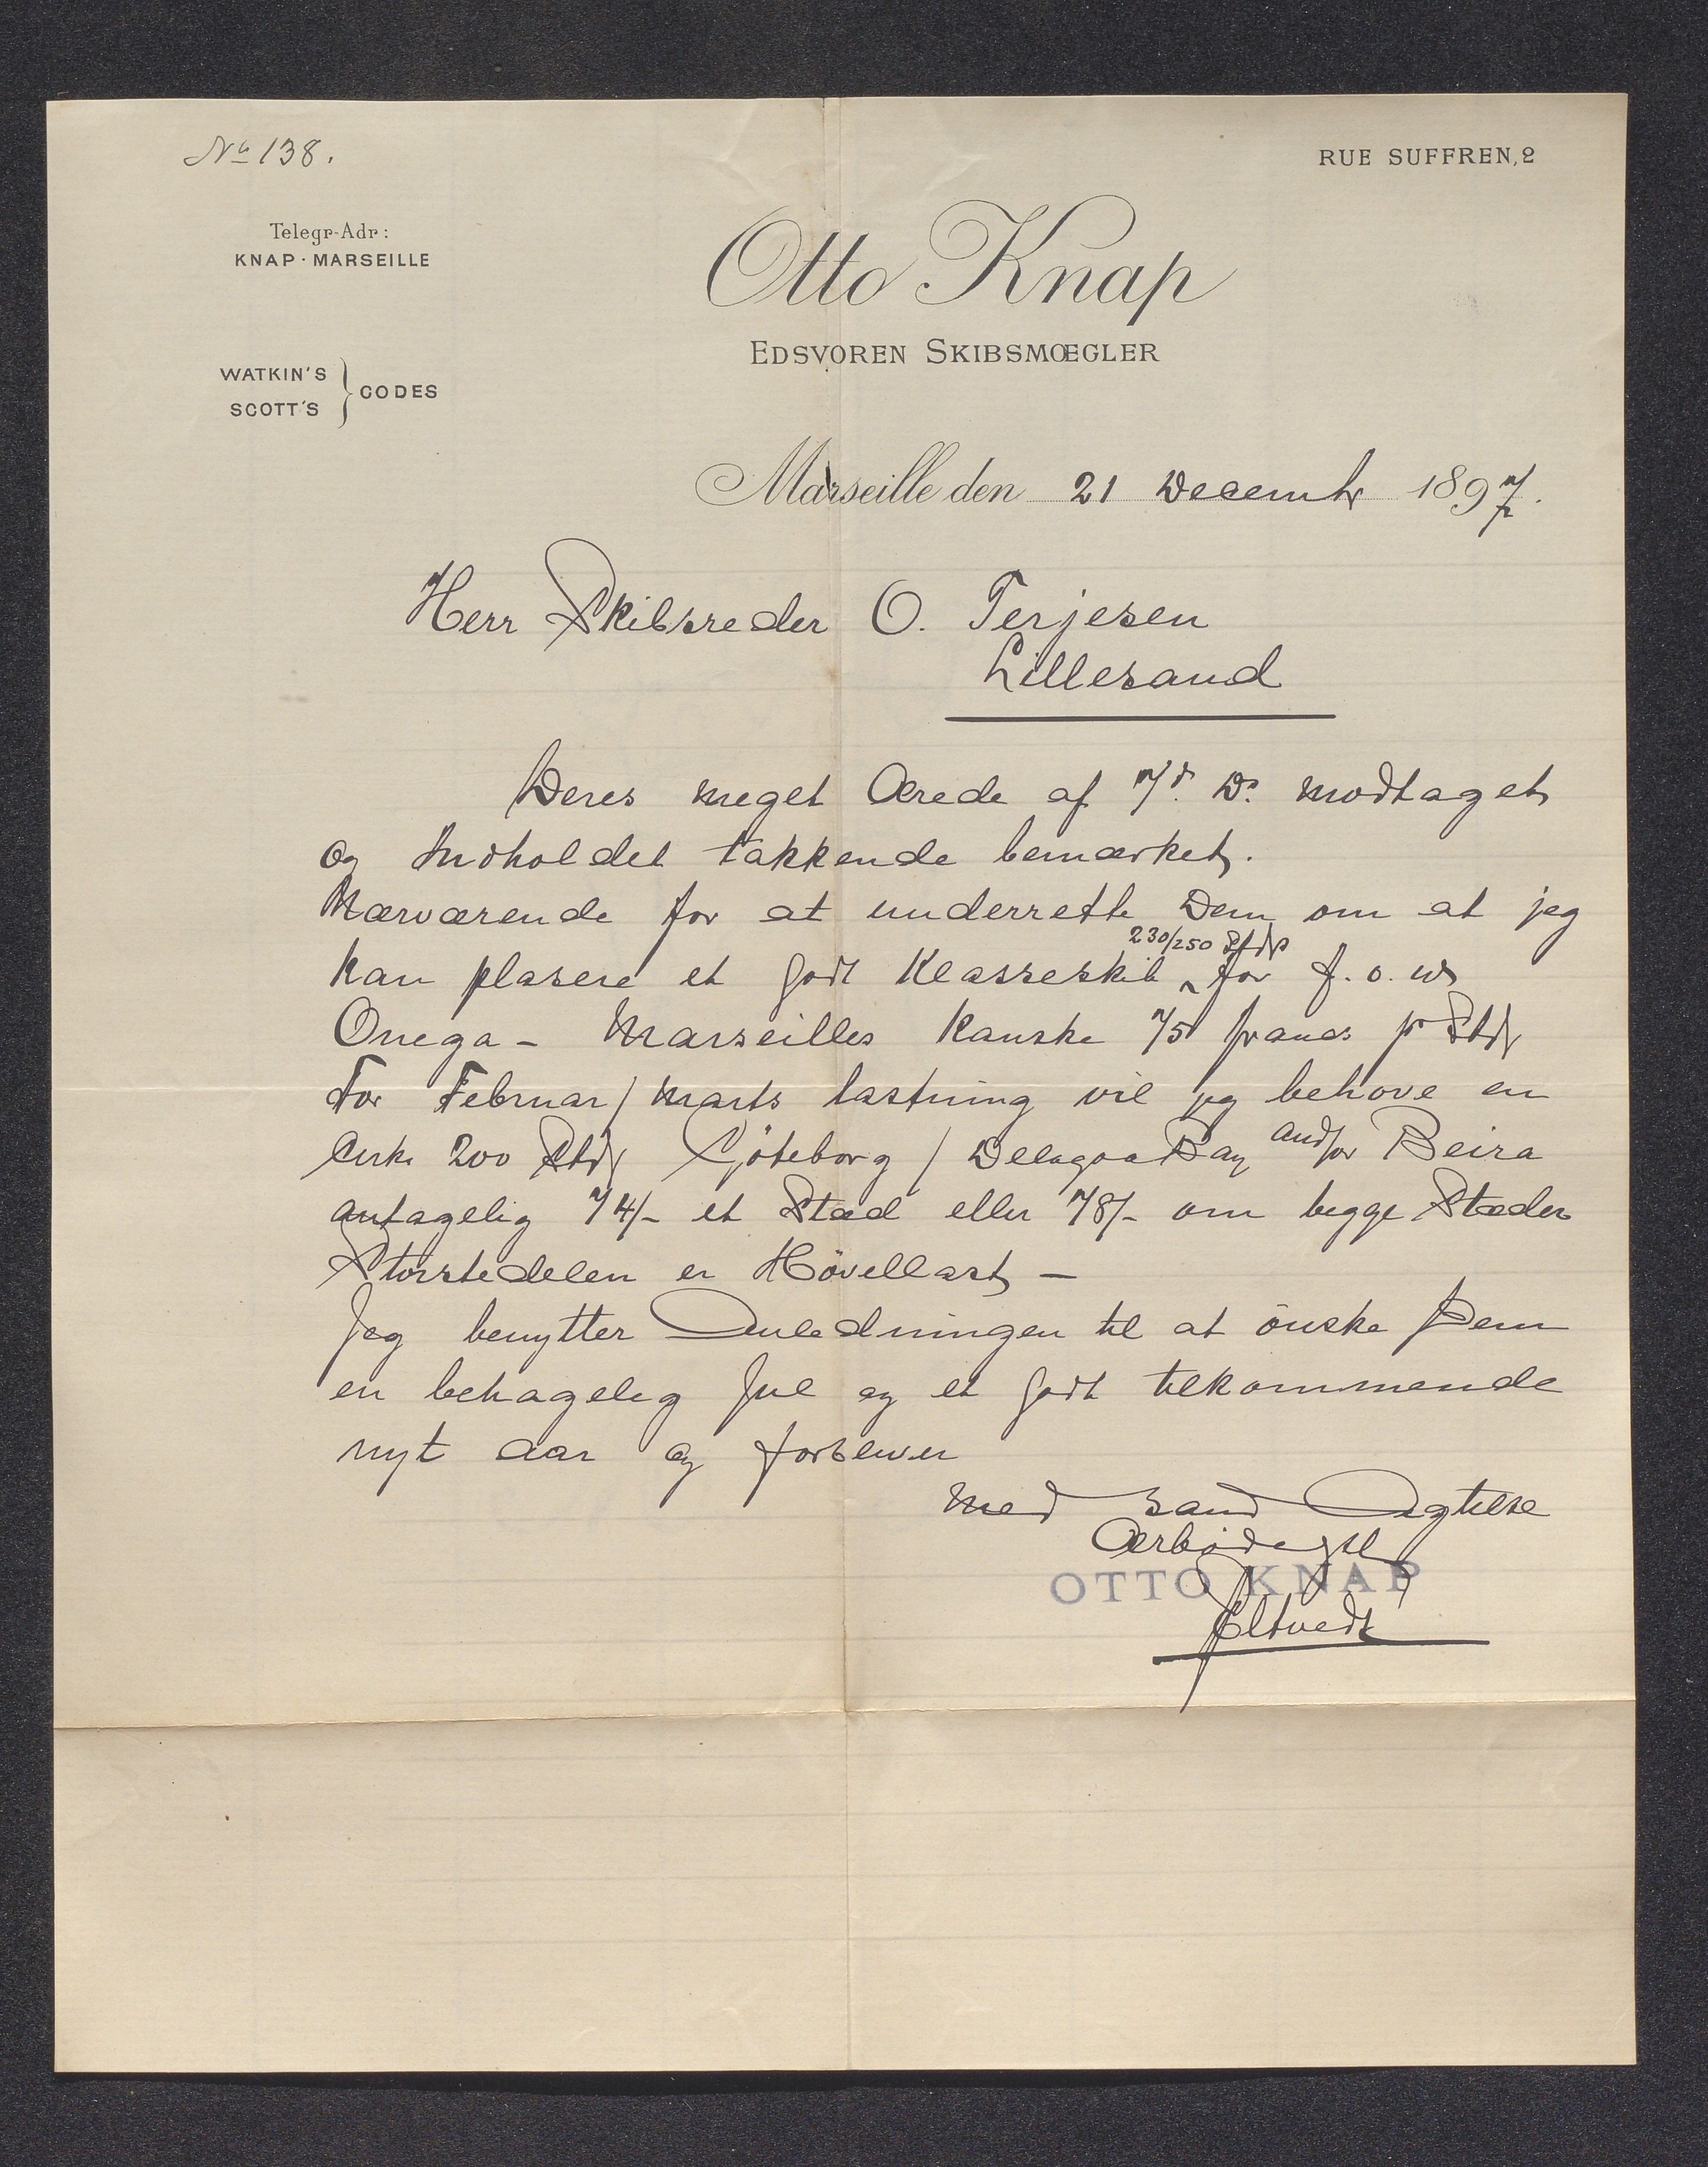 No 138.
RUE SUFFREN, 2
Telegr-Adr:
KNAP · MARSEILLE
Otto Knap
EDSVOREN SKIBSMŒGLER
WATKIN'S
SCOTT'S } CODES
Marseille den 21 Decembr 1897.
Herr Skibsreder O. Terjesen
Lillesand
Deres meget Ærede af 7d. Ds. modtaget
og Indholdet takkende bemærket.
Nærværende for at underrette Dem om at jeg
230/250 Stds
kan plasere et godt Klasseskib ^ for f.o.w
Onega - Marseilles kanske 75 francs pr Std
For Februar / Marts lastning vil jeg behøve en
Cirka 200 Stds Göteborg / Delagoa Bay and/or Beira
antagelig 74/- et Sted eller 78/- om begge Steder
Størstedelen er Hövellast —
Jeg benytter Anledningen til at önske Dem
en behagelig Jul og et godt tilkommende
nyt aar og forbliver
Med sand Agtelse
Ærbødigst
OTTO KNAP